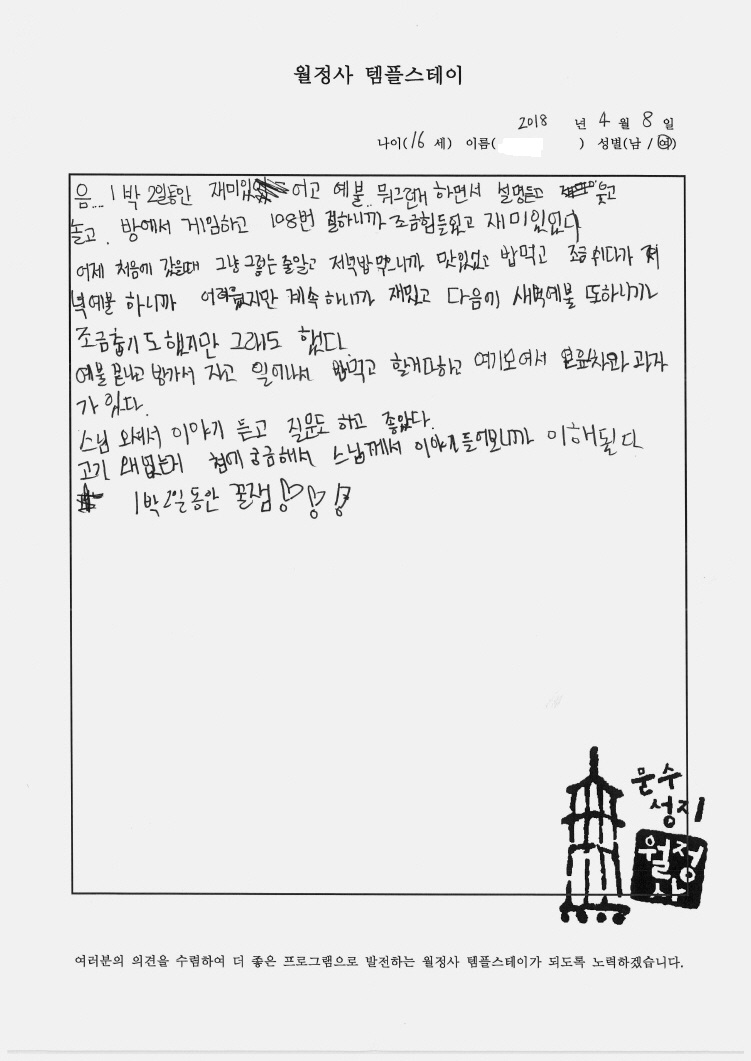 월정사 템플스테이
2018 년 4 월 8 일
나이(16 세) 이름( ) 성별(남 / 여)
음... 1박 2일동안 재미있 어고 예불.. 뭐그런거 하면서 설명듣고 웃고
놀고. 방에서 게임하고 108번 절하니까 조금힘들었고 재미있었다
어제 처음에 갔을때 그냥 그렇는줄알고 저녁밥먹으니까 맛있었고 밥먹고 조금 쉬다가 저
녁예불 하니까 어려웠지만 계속하니까 재밌고 다음에 새벽예불 또하니까
조금춥기도 했지만 그래도 했다
예불 끝나고 방가서 자고 일어나서 밥먹고 할거다하고 여기모여서 차와 과자
가 있다.
스님 오셔서 이야기 듣고 질문도 하고 좋았다.
고기 왜 없는지 첨에 궁금해서 스님께서 이야기들어보니까 이해된다
1박2일동안 꿀잼!♡!♡!
문수
성지
월정
사
여러분의 의견을 수렴하여 더 좋은 프로그램으로 발전하는 월정사 템플스테이가 되도록 노력하겠습니다.